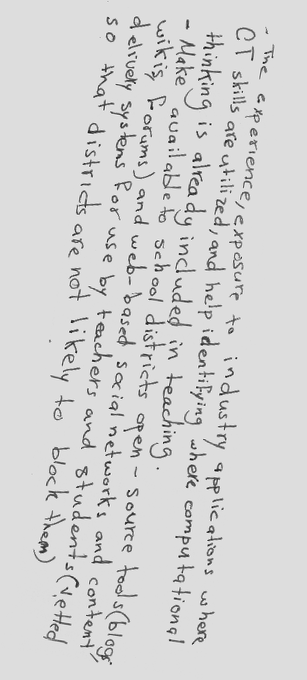 - The experience, exposure to industry applications where
CT skills are utilized, and help identifying where computational
thinking is already included in teaching.
- Make available to school districts open-source tools (blogs,
wikis, forums) and web-based social networks and content
delivery systems for use by teachers and students (vetted
so that districts are not likely to block them)